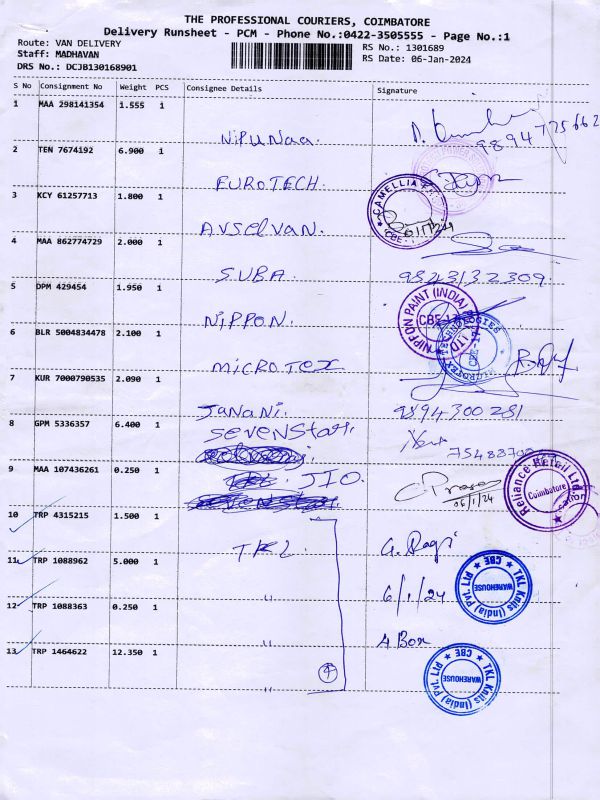 THE PROFESSIONAL COURIERS, COIMBATORE
Delivery Runsheet - PCM - Phone No.:0422-3505555 - Page No.:1
Route: VAN DELIVERY
RS No.: 1301689
Staff: MADHAVAN
RS Date: 06-Jan-2024
DRS No.: DCJB130168901
S No Consignment No Weight PCS Consignee Details Signature
1 MAA 298141354 1.555 1
NiPUNaa.
2 TEN 7674192 6.900 1
EUROTECH.
3 KCY 61257713 1.800 1
AVSelVAN.
CAMELLIA
CBE
4 MAA 862774729 2.000 1
SUBA. 9843132309
5 DPM 429454 1.950 1
NiPPON.
NIPPON PAINT (INDIA) LTD
CBE-1
6 BLR 5004834478 2.100 1
MICROTEX
MICROTEX TECHNOLOGIES
7 KUR 7000790535 2.090 1
JANANi. 9894300281
8 GPM 5336357 6.400 1
SEVENStar.
9 MAA 107436261 0.250 1
JIO.
06/1/24
Reliance Retail Ltd
Coimbatore
10 TRP 4315215 1.500 1
TKL G. Ragi
11 TRP 1088962 5.000 1
" 6/1/24
TKL Knits (India) Pvt. Ltd
WAREHOUSE
CBE
12 TRP 1088363 0.250 1
" 4 Box
13 TRP 1464622 12.350 1
" 4
TKL Knits (India) Pvt. Ltd
WAREHOUSE
CBE